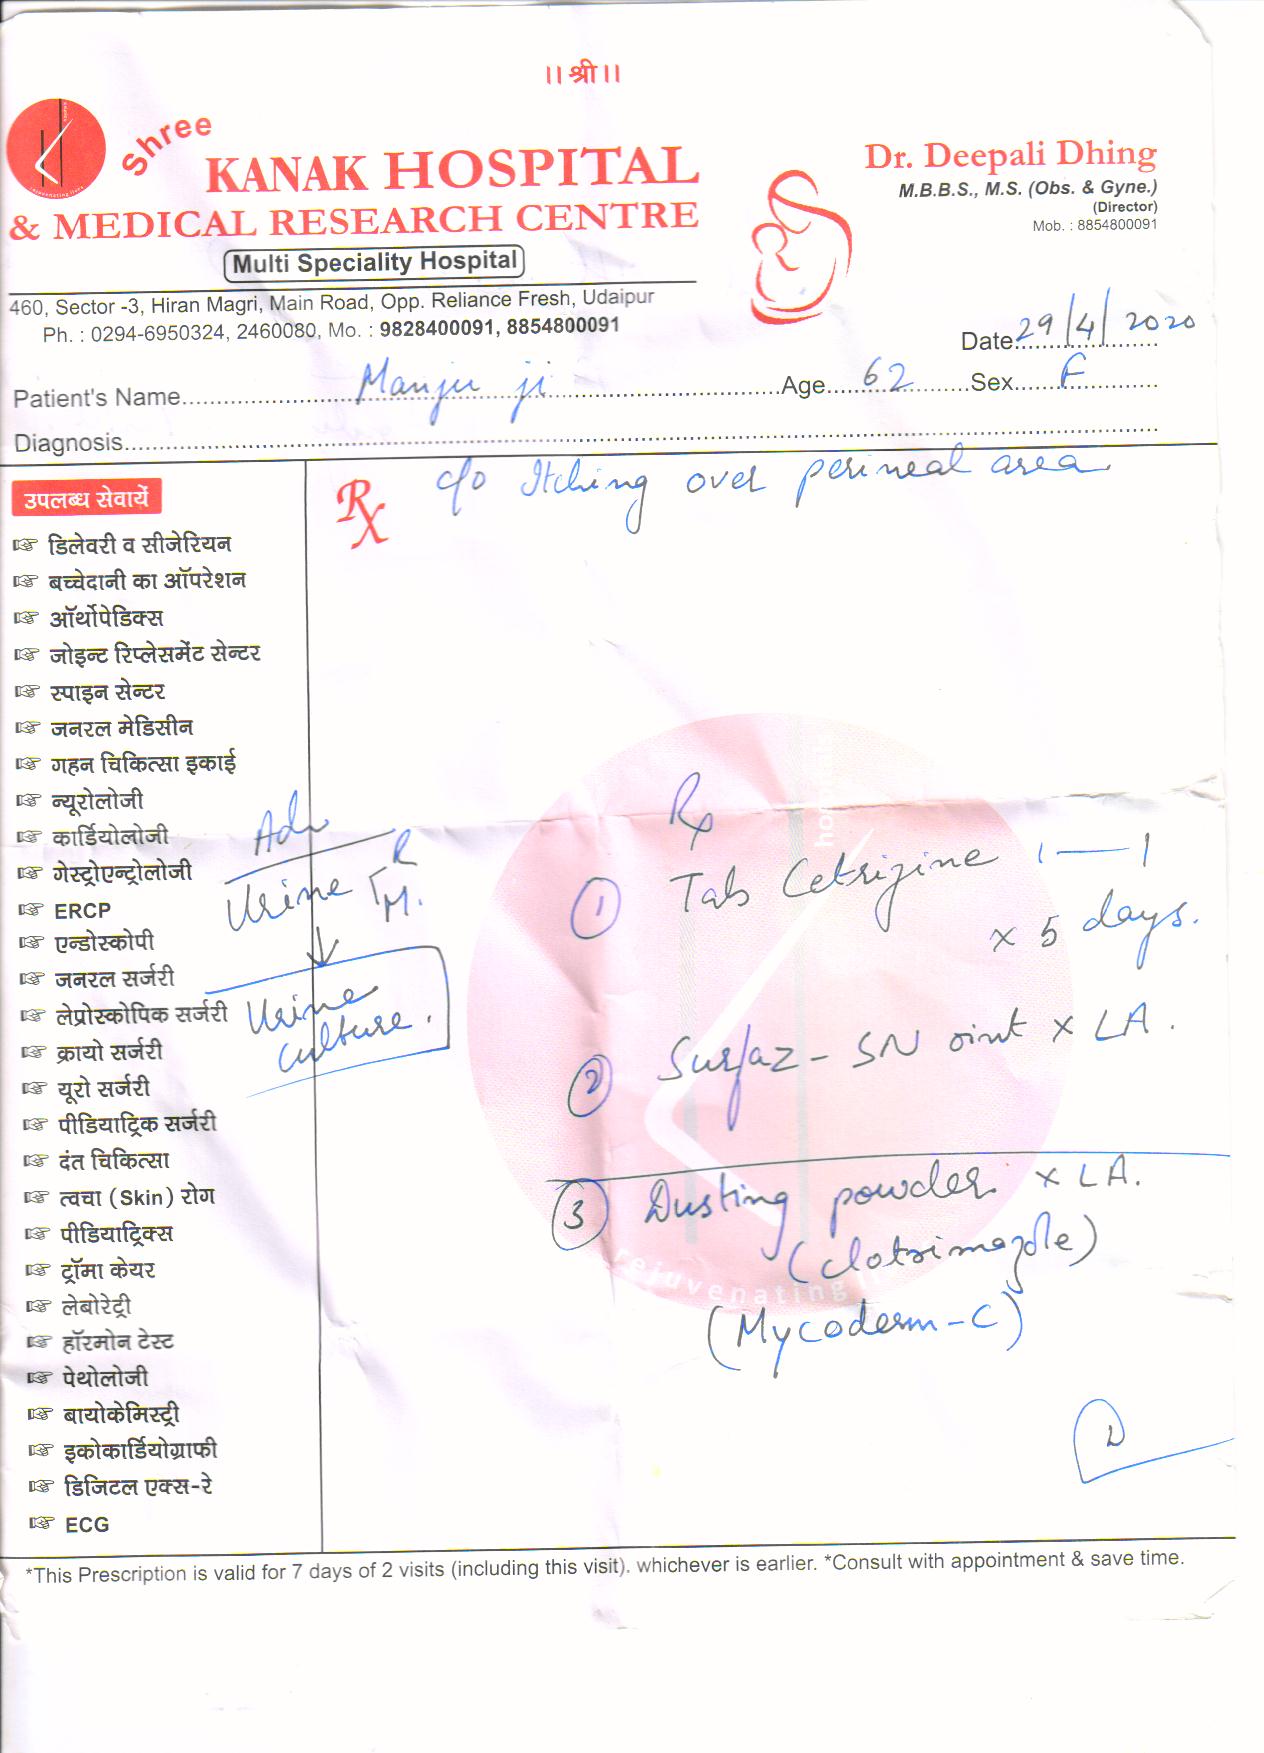 ।। श्री ।।
Shree
KANAK HOSPITAL
& MEDICAL RESEARCH CENTRE
Multi Speciality Hospital
460, Sector -3, Hiran Magri, Main Road, Opp. Reliance Fresh, Udaipur
Ph. : 0294-6950324, 2460080, Mo. : 9828400091, 8854800091
Dr. Deepali Dhing
M.B.B.S., M.S. (Obs. & Gyne.)
(Director)
Mob. : 8854800091
Date: 29/4/2020
Patient's Name Manju ji Age 62 Sex F
Diagnosis
उपलब्ध सेवायें
डिलेवरी व सीजेरियन
बच्चेदानी का ऑपरेशन
ऑर्थोपेडिक्स
जोइन्ट रिप्लेसमेंट सेन्टर
स्पाइन सेन्टर
जनरल मेडिसीन
गहन चिकित्सा इकाई
न्यूरोलोजी
कार्डियोलोजी
गेस्ट्रोएन्ट्रोलोजी
ERCP
एन्डोस्कोपी
जनरल सर्जरी
लेप्रोस्कोपिक सर्जरी
क्रायो सर्जरी
यूरो सर्जरी
पीडियाट्रिक सर्जरी
दंत चिकित्सा
त्वचा (Skin) रोग
पीडियाट्रिक्स
ट्रॉमा केयर
लेबोरेट्री
हॉरमोन टेस्ट
पेथोलोजी
बायोकेमिस्ट्री
इकोकार्डियोग्राफी
डिजिटल एक्स-रे
ECG
Rx
c/o Itching over perineal area
Adv
Urine R
M.
Urine
culture.
Rx
1 Tab Cetrizine 1 — 1
x 5 days.
2 Surfaz - SN oint x LA.
3 Dusting powder x LA.
(clotrimazole)
(Mycoderm - C)
hospitals
rejuvenating
*This Prescription is valid for 7 days of 2 visits (including this visit). whichever is earlier. *Consult with appointment & save time.